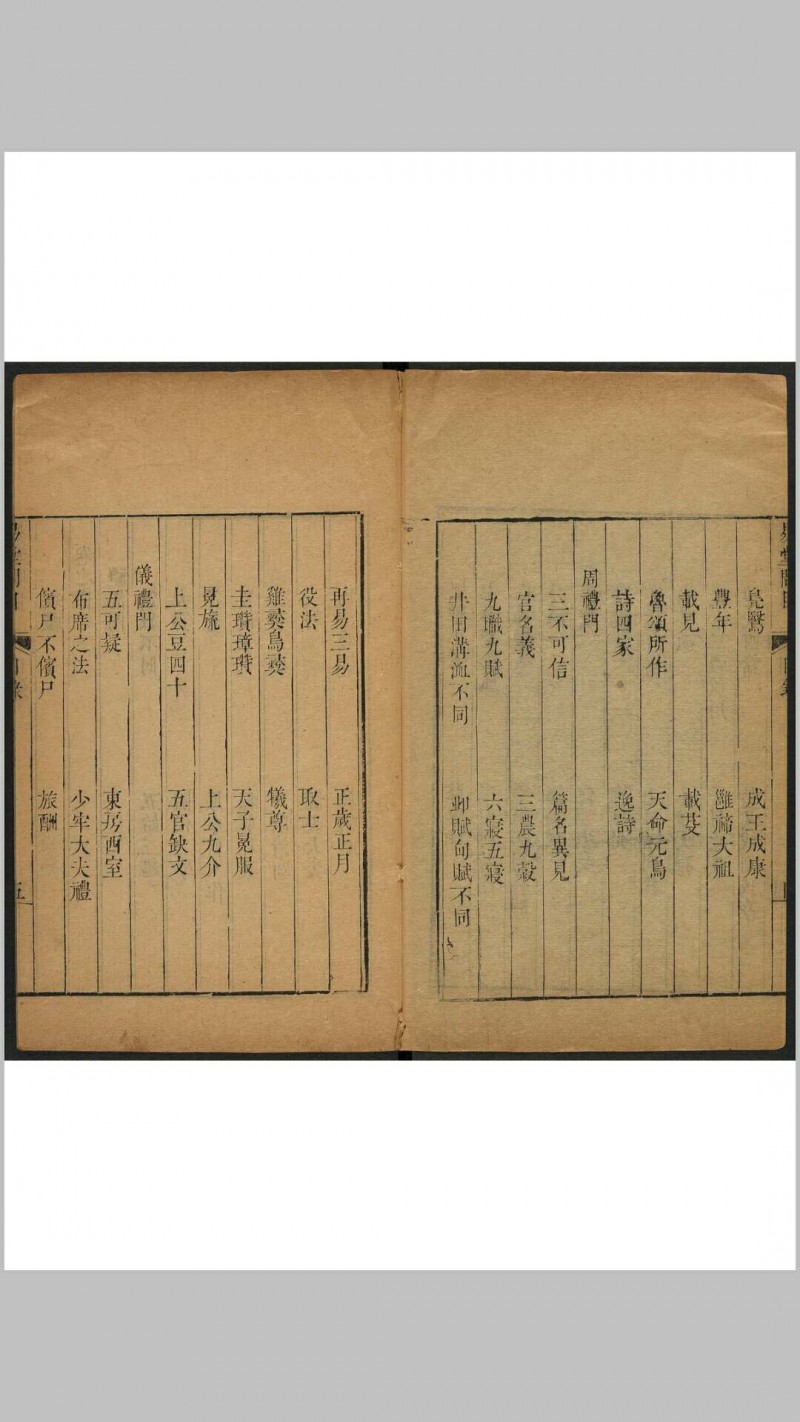 鳧鷖　成王成康
豐年　雝禘大祖
載見　載芟
魯頌所作　天命元鳥
詩四家　逸詩
周禮門
三不可信　篇名異見
官名義　三農九穀
九職九賦　六寢五寢
井田溝洫不同　邱賦甸賦不同
再易三易　正歲正月
役法　取士
雞彝鳥彝　犧尊
圭瓚璋瓚　天子冕服
冕旒　上公九介
上公豆四十　五官缺文
儀禮門
五可疑　東房西室
布席之法　少牢大夫禮
儐尸不儐尸　旅酬
五